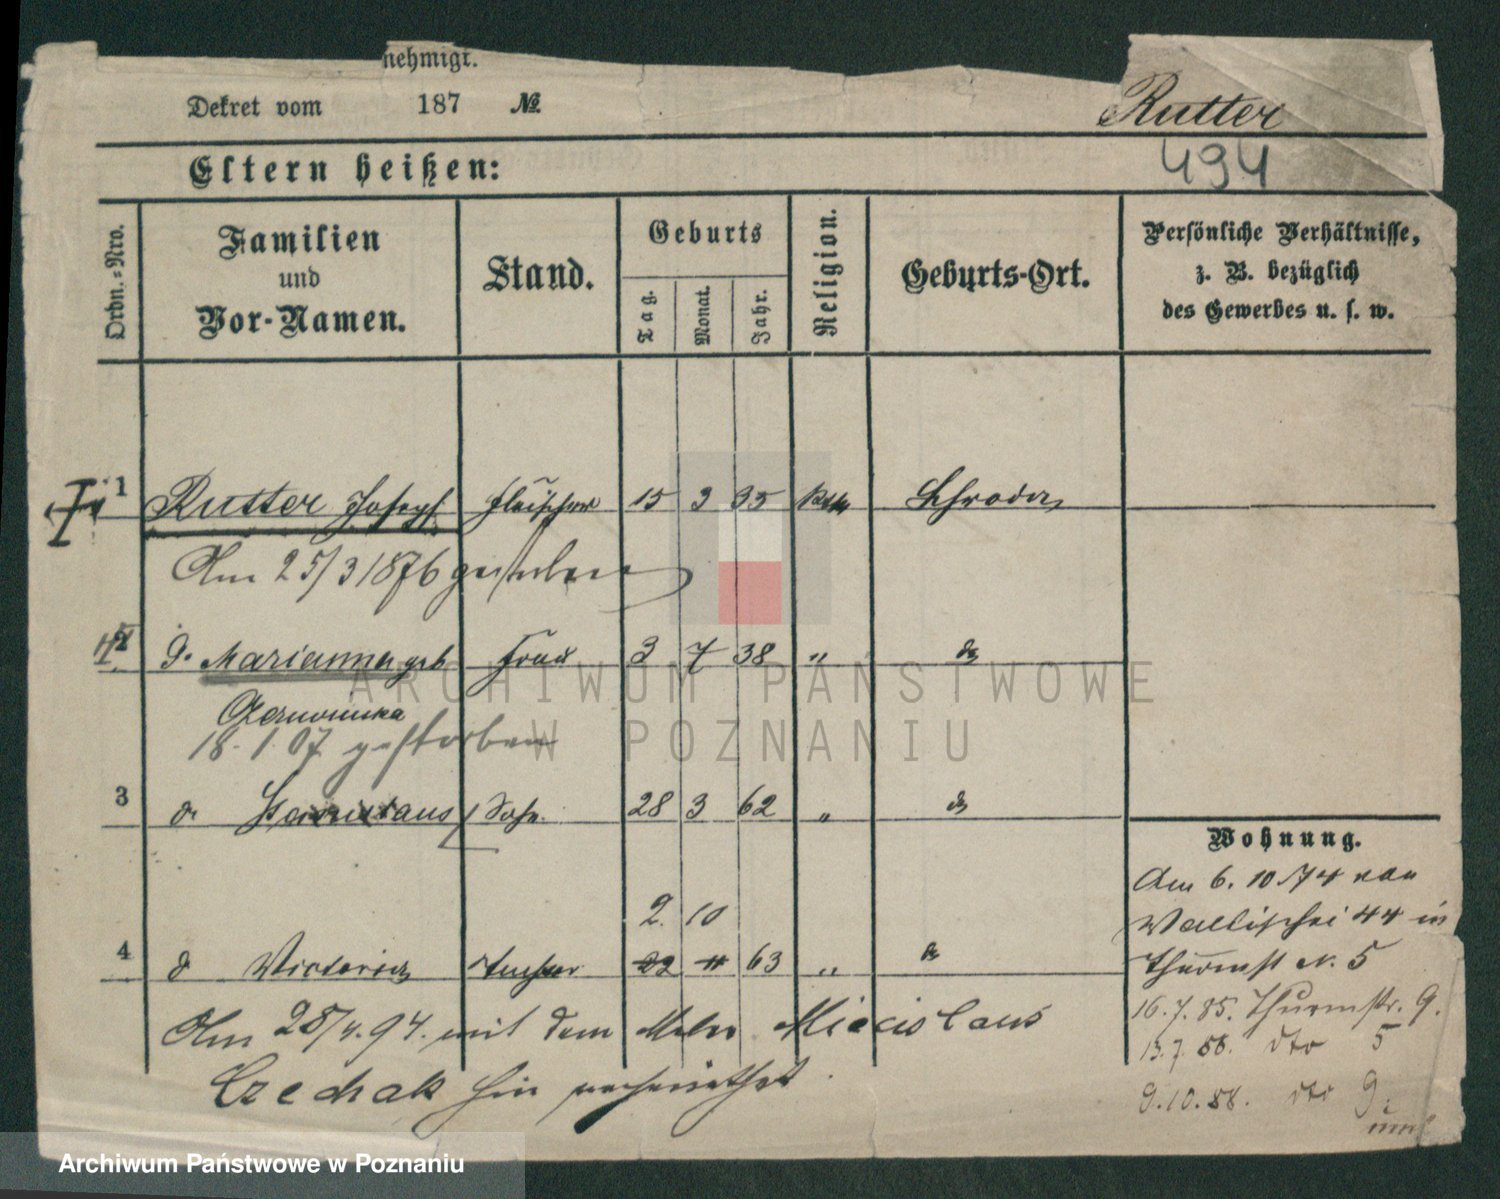 nehmigt.
Dekret vom 187 №
Rutter
494
Eltern heißen:
Ordn.=Nro.
Familien
und
Vor-Namen.
Stand.
Geburts
Tag.
Monat.
Jahr.
Religion.
Geburts-Ort.
Persönliche Verhältnisse,
z. B. bezüglich
des Gewerbes u. s. w.
1 Rutter Joseph Fleischer 15 3 35 Kath Schroda
Am 25/3 1876 gestorben
2 d. Marianna geb Frau 3 7 38 „ do
18. 1. 07 gestorben
3 do Sohn 28 3 62 „ do
2. 10
4 d Victoria Tochter 22 11 63 „ do
Am 25/4. 94. mit dem Maler Miecislaus
Czechak hier verheirathet.
Wohnung.
Am 6. 10. 74 von
Wallischei 44 in
Thurmst N. 5
16. 7. 85. Thurmstr. 9.
13. 7. 88. dto 5
9. 10. 88. dto 9.
ARCHIWUM PAŃSTWOWE
W POZNANIU
Archiwum Państwowe w Poznaniu